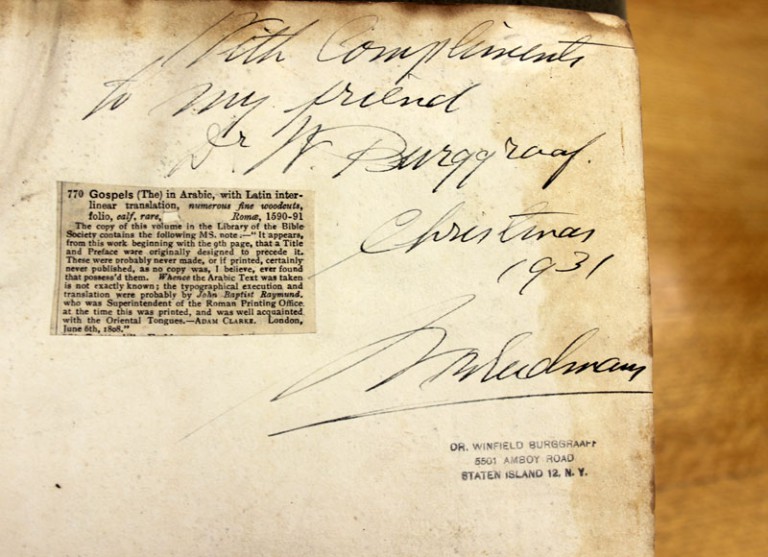 With Compliments
to my friend
Dr W. Burggraaf.
Christmas
1931
770 Gospels (The) in Arabic, with Latin inter-
linear translation, numerous fine woodcuts,
folio, calf, rare, Romæ, 1590-91
The copy of this volume in the Library of the Bible
Society contains the following MS. note:—"It appears,
from this work beginning with the 9th page, that a Title
and Preface were originally designed to precede it.
These were probably never made, or if printed, certainly
never published, as no copy was, I believe, ever found
that possess'd them. Whence the Arabic Text was taken
is not exactly known; the typographical execution and
translation were probably by John Baptist Raymund,
who was Superintendent of the Roman Printing Office
at the time this was printed, and was well acquainted
with the Oriental Tongues.—ADAM CLARKE. London,
June 6th, 1808."
DR. WINFIELD BURGGRAAFF
5501 AMBOY ROAD
STATEN ISLAND 12, N. Y.